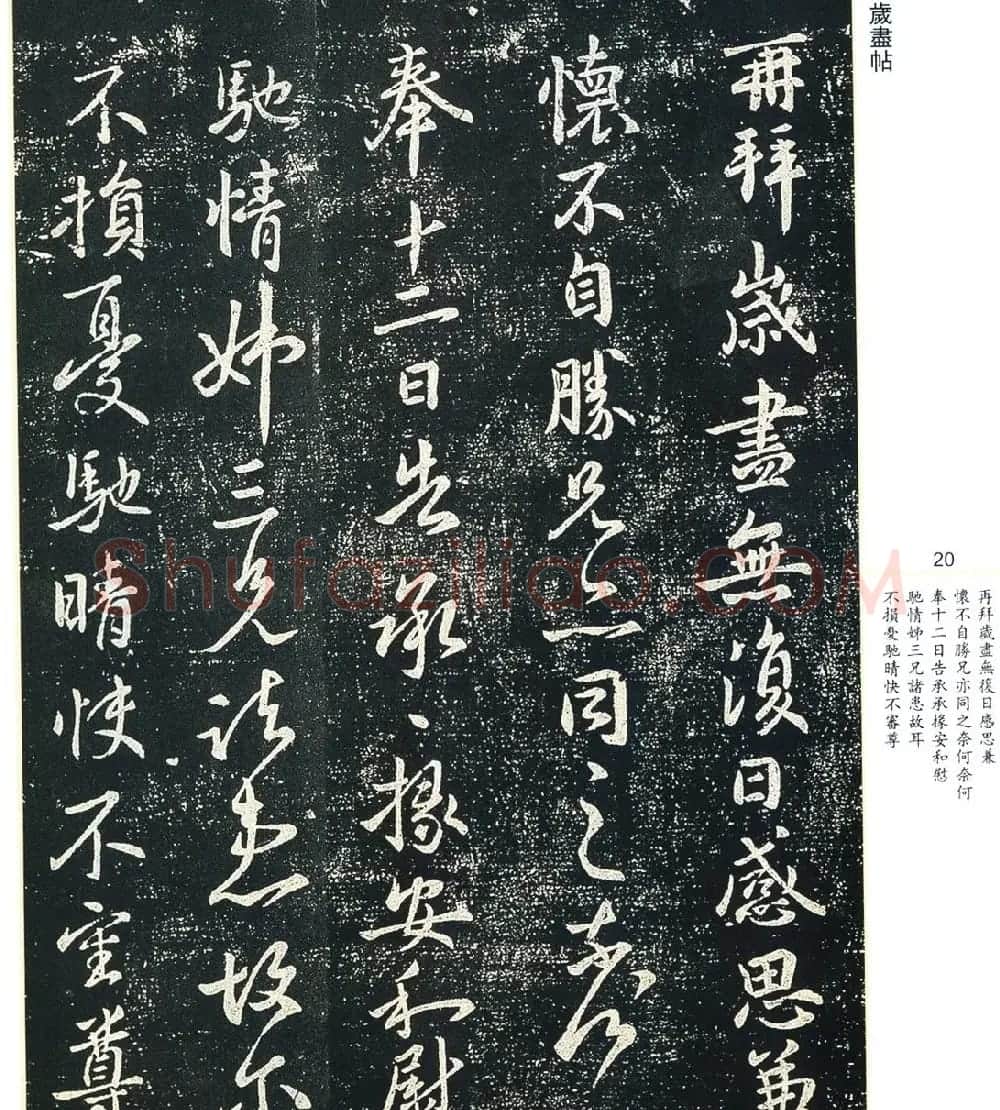 歲盡帖
再拜歲盡無復日感思兼
懷不自勝兄亦同之奈何
奉十二日告承〻掾安和慰
馳情姊三兄諸患故尔
不損憂馳晴快不審尊
20
再拜歲盡無復日感思兼
懷不自勝兄亦同之奈何奈何
奉十二日告承承掾安和慰
馳情姊三兄諸患故耳
不損憂馳晴快不審尊
Shufaziliao.COM